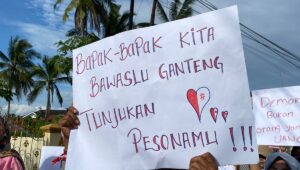 BAPAK-BAPAK KITA
BAWASLU GANTENG
TUNJUKAN
PESONAMU !!!
DEMOK
BUKAN
ORANG YANG
UANG